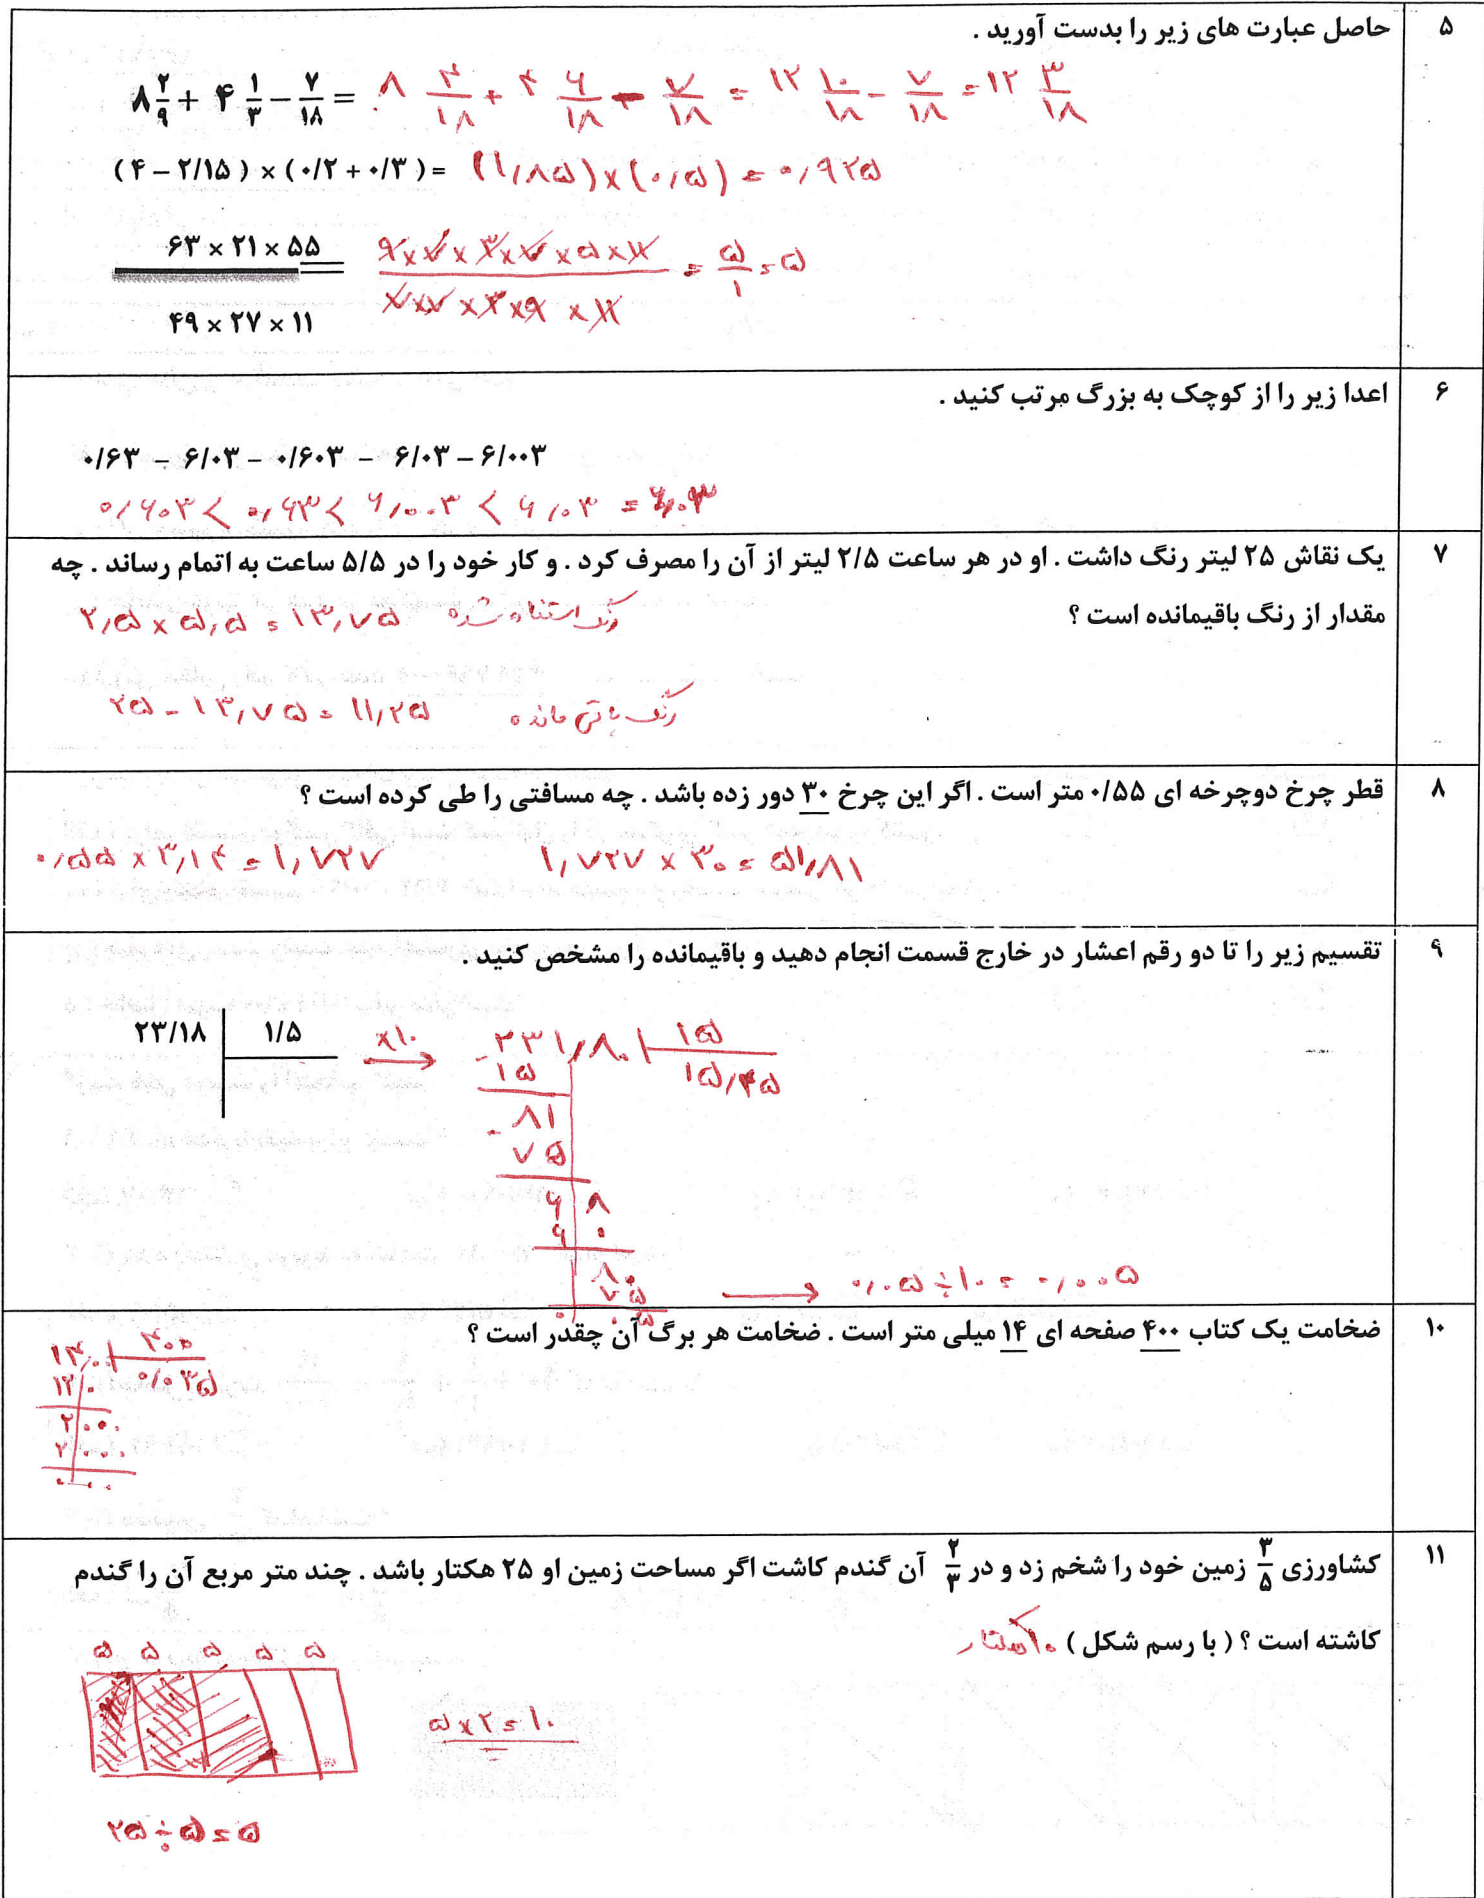 ۵ حاصل عبارت های زیر را بدست آورید .
۸ ۲/۹ + ۴ ۱/۳ − ۷/۱۸ = ۸ ۴/۱۸ + ۴ ۶/۱۸ - ۷/۱۸ = ۱۲ ۱۰/۱۸ - ۷/۱۸ = ۱۲ ۳/۱۸
( ۴ − ۲/۱۵ ) × ( ۰/۲ + ۰/۳ ) = (۱/۸۵) × (۰/۵) = ۰/۹۲۵
۶۳ × ۲۱ × ۵۵ = ۹×۷×۳×۷×۵×۱۱ = ۵/۱ = ۵
۴۹ × ۲۷ × ۱۱ ۷×۷×۳×۹×۱۱
۶ اعدا زیر را از کوچک به بزرگ مرتب کنید .
۰/۶۳ − ۶/۰۳ − ۰/۶۰۳ − ۶/۰۳ − ۶/۰۰۳
۰/۶۰۳ < ۰/۶۳ < ۶/۰۰۳ < ۶/۰۳ = ۶/۰۳
۷ یک نقاش ۲۵ لیتر رنگ داشت . او در هر ساعت ۲/۵ لیتر از آن را مصرف کرد . و کار خود را در ۵/۵ ساعت به اتمام رساند . چه
مقدار از رنگ باقیمانده است ؟
۲/۵ × ۵/۵ = ۱۳/۷۵ رنگ استفاده شده
۲۵ - ۱۳/۷۵ = ۱۱/۲۵ رنگ باقی مانده
۸ قطر چرخ دوچرخه ای ۰/۵۵ متر است . اگر این چرخ ۳۰ دور زده باشد . چه مسافتی را طی کرده است ؟
۰/۵۵ × ۳/۱۴ = ۱/۷۲۷ ۱/۷۲۷ × ۳۰ = ۵۱/۸۱
۹ تقسیم زیر را تا دو رقم اعشار در خارج قسمت انجام دهید و باقیمانده را مشخص کنید .
۲۳/۱۸ ۱/۵ ×۱۰ → ۲۳۱/۸۰ ۱۵
۱۵ ۱۵/۴۵
۸۱
۷۵
۶ ۸
۶ ۰
۸۰
۷۵ → ۰/۰۵ ÷ ۱۰ = ۰/۰۰۵
۰ ۰۵
۱۰ ضخامت یک کتاب ۴۰۰ صفحه ای ۱۴ میلی متر است . ضخامت هر برگ آن چقدر است ؟
۱۴/۰۰ ۴۰۰
۱۲/۰ ۰/۰۳۵
۲۰۰۰
۲۰۰۰
۰۰۰۰
۱۱ کشاورزی ۳/۵ زمین خود را شخم زد و در ۲/۳ آن گندم کاشت اگر مساحت زمین او ۲۵ هکتار باشد . چند متر مربع آن را گندم
کاشته است ؟ ( با رسم شکل ) ۱۰ هکتار
۵ ۵ ۵ ۵ ۵
۵ × ۲ = ۱۰
۲۵ ÷ ۵ = ۵